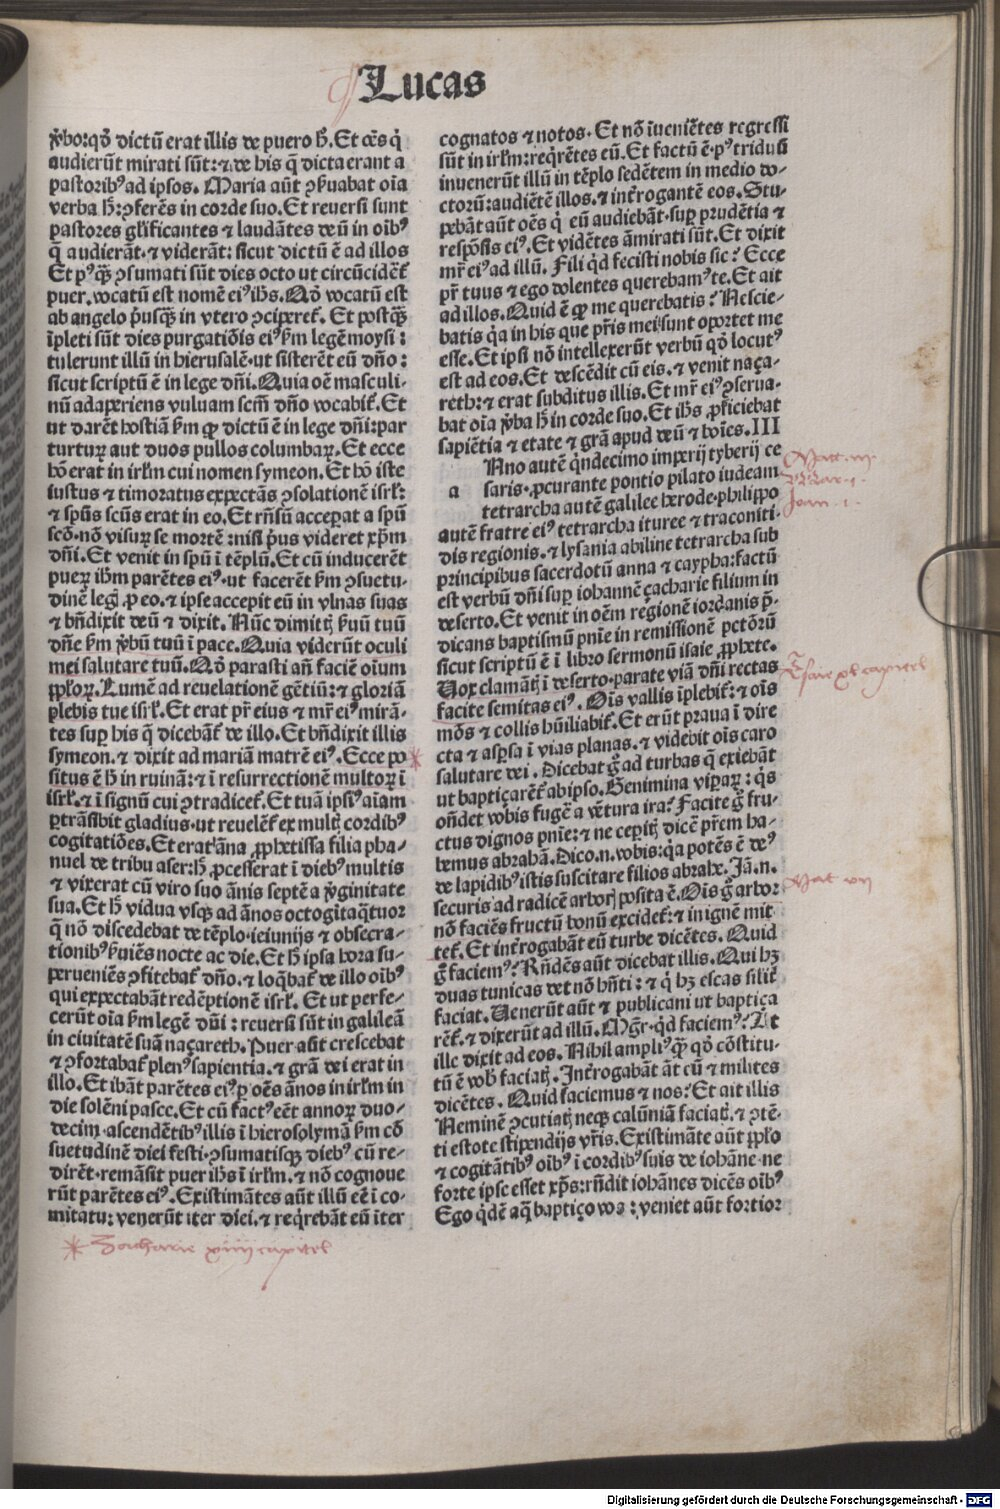 Lucas
v̄bo: qđ dictū erat illis de puero h̄. Et oēs q̇
audierūt mirati sūt: ⁊ de his q̄ dicta erant a
pastoribꝰ ad ipsos. Maria aūt ꝯẜuabat oīa
verba h̄: ꝯferēs in corde suo. Et reuersi sunt
pastores gl̄ificantes ⁊ laudātes deū in oībꝰ
q̄ audierāt ⁊ viderāt: sicut dictū ē ad illos
Et pꝰq̄ꝫ ꝯsumati sūt dies octo ut circūcidēt̄
puer. vocatū est nomē eiꝰ ih̄s. Qđ vocatū est
ab angelo p̄usq̄ꝫ in vtero ꝯciperet̄. Et postq̄ꝫ
īpleti sūt dies purgatiōis eiꝰ ẜm legē moysi:
tulerunt illū in hierusalē. ut sisterēt eū dño:
sicut scriptū ē in lege dñi. Quia oē masculi-
nū adaperiens vuluam scm̄ dño vocabit̄. Et
ut darēt hostiā ẜm ꝙ dictū ē in lege dñi: par
turturꝝ aut duos pullos columbaꝝ. Et ecce
hō erat in irl̄m cui nomen symeon. Et hō iste
iustus ⁊ timoratus expectās ꝯsolationē isrl̄:
⁊ spūs scūs erat in eo. Et rn̄sū acceperat a spū
scō. nō visuꝝ se mortē: nisi p̄us videret xp̄m
dñi. Et venit in spū ī tēplū. Et cū inducerēt
pueꝝ ih̄m parētes eiꝰ. ut facerēt ẜm ꝯsuetu-
dinē legꝭ ꝓ eo. ⁊ ipse accepit eū in vlnas suas
⁊ bn̄dixit deū ⁊ dixit. Nūc dimittꝭ ẜuū tuū
dñe ẜm v̄bū tuū ī pace. Quia viderūt oculi
mei salutare tuū. Qđ parasti an̄ faciē oīum
ppl̄oꝝ. Lumē ad reuelationē gētiū: ⁊ gloriā
plebis tue isrl̄. Et erat pr̄ eius ⁊ mr̄ eiꝰ mirā-
tes sup his q̄ dicebāt̄ de illo. Et bn̄dixit illis
symeon. ⁊ dixit ad mariā matrē eiꝰ. Ecce po
situs ē h̄ in ruinā: ⁊ ī resurrectionē multoꝝ ī
isrl̄. ⁊ ī signū cui ꝯtradicet̄. Et tuā ipsiꝰ aīam
ꝑtrāsibit gladius. ut reuelēt̄ ex multꝭ cordibꝰ
cogitatiōes. Et erat āna ꝓphetissa filia pha-
nuel de tribu aser: h̄ ꝓcesserat ī diebꝰ multis
⁊ vixerat cū viro suo ānis septē a v̄ginitate
sua. Et h̄ vidua vsqꝫ ad ānos octogīta q̄tuor
q̄ nō discedebat de tēplo. ieiunijs ⁊ obsecra-
tionibꝰ ẜuiēs nocte ac die. Et h̄ ipsa hora su-
perueniēs ꝯfitebat̄ dño. ⁊ loq̄bat̄ de illo oībꝰ
qui expectabāt redēptionē isrl̄. Et ut perfe-
cerūt oīa ẜm legē dñi: reuersi sūt in galileā
in ciuitatē suā naçareth. Puer aūt crescebat
⁊ ꝯfortabat̄ plenꝰ sapientia. ⁊ grā dei erat in
illo. Et ibāt parētes eiꝰ ꝑ oēs ānos in irl̄m in
die solēni pasce. Et cū factꝰ eēt annoꝝ duo-
decim. ascendētibꝰ illis ī hierosolymā ẜm cō
suetudinē diei festi. ꝯsumatisqꝫ diebꝰ cū re-
dirēt. remāsit puer ih̄s ī irl̄m. ⁊ nō cognoue
rūt parētes eiꝰ. Existimātes aūt illū eē ī co-
mitatu: venerūt iter diei. ⁊ req̄rebāt eū iter
cognatos ⁊ notos. Et nō īueniētes regressi
sūt in irl̄m: req̄rētes eū. Et factū ē. pꝰ triduū
inuenerūt illū in tēplo sedētem in medio do-
ctorū: audiētē illos. ⁊ int̄rogantē eos. Stu-
pebāt aūt oēs q̇ eū audiebāt. suꝑ prudētia ⁊
respōsis eiꝰ. Et vidētes āmirati sūt. Et dixit
mr̄ eiꝰ ad illū. Fili qd̄ fecisti nobis sic? Ecce
pr̄ tuus ⁊ ego dolentes querebamꝰ te. Et ait
ad illos. Quid ē ꝙ me querebatis? Nescie-
batis q̇a in his que pr̄is mei sunt oportet me
esse. Et ipsi nō intellexerūt verbū qđ locutꝰ
est ad eos. Et descēdit cū eis. ⁊ venit naça-
reth: ⁊ erat subditus illis. Et mr̄ eiꝰ ꝯserua-
bat oīa v̄ba h̄ in corde suo. Et ih̄s ꝓficiebat
sapiētia ⁊ etate ⁊ grā apud deū ⁊ hoīes. III
Nno autē q̇ndecimo imperij tyberij ce
a saris. ꝓcurante pontio pilato iudeam
tetrarcha autē galilee herode. philippo
autē fratre eiꝰ tetrarcha ituree ⁊ traconiti-
dis regionis. ⁊ lysania abiline tetrarcha sub
principibus sacerdotū anna ⁊ caypha: factū
est verbū dñi suꝑ iohannē çacharie filium in
deserto. Et venit in oēm regionē iordanis p̄-
dicans baptismū pn̄ie in remissionē pctōrū
sicut scriptū ē ī libro sermonū isaie ꝓphete.
Vox clamātꝭ ī deserto. parate viā dñi rectas
facite semitas eiꝰ. Oīs vallis īplebit̄: ⁊ oīs
mōs ⁊ collis hūiliabit̄. Et erūt praua ī dire
cta ⁊ asꝑa ī vias planas. ⁊ videbit oīs caro
salutare dei. Dicebat ḡ ad turbas q̄ exiebāt
ut baptiçarēt̄ ab ipso. Genimina viꝑaꝝ: q̇s
oñdet vobis fugē a vētura ira? Facite ḡ fru-
ctus dignos pn̄ie: ⁊ ne ceperitꝭ dicē pr̄em ha-
bemus abrahā. Dico .n. vobis: q̇a potēs ē deꝰ
de lapidibꝰ istis suscitare filios abrahe. Iā .n.
securis ad radicē arborꝭ posita ē. Oīs ḡ arbor
nō faciēs fructū bonū excidet̄: ⁊ in ignē mit
tet̄. Et int̄rogabāt eū turbe dicētes. Quid
ḡ faciemꝰ? Rn̄dēs aūt dicebat illis. Qui hꝫ
duas tunicas det nō hn̄ti: ⁊ q̇ hꝫ escas silit̄
faciat. Venerūt aūt ⁊ publicani ut baptiça
rēt̄. ⁊ dixerūt ad illū. Mgr̄. qd̄ faciemꝰ? At
ille dixit ad eos. Nihil ampliꝰ q̄ꝫ qđ cōstitu-
tū ē vob̄ faciatꝭ. Int̄rogabāt āt cū ⁊ milites
dicētes. Quid faciemus ⁊ nos? Et ait illis
Neminē ꝯcutiatꝭ neqꝫ calūniā faciatꝭ. ⁊ ꝯtē-
ti estote stipendijs vr̄is. Existimāte aūt ppl̄o
⁊ cogitātibꝰ oībꝰ ī cordibꝰ suis de iohāne. ne
forte ipse esset xp̄s: rn̄dit iohānes dicēs oībꝰ
Ego qdē aq̄ baptiço vos: veniet aūt fortior
Matt. iii.
Mar. i.
Joan. i.
Esaie xl capitel
Mat vii
Zacharie xiiii capitel
Digitalisierung gefördert durch die Deutsche Forschungsgemeinschaft - DFG